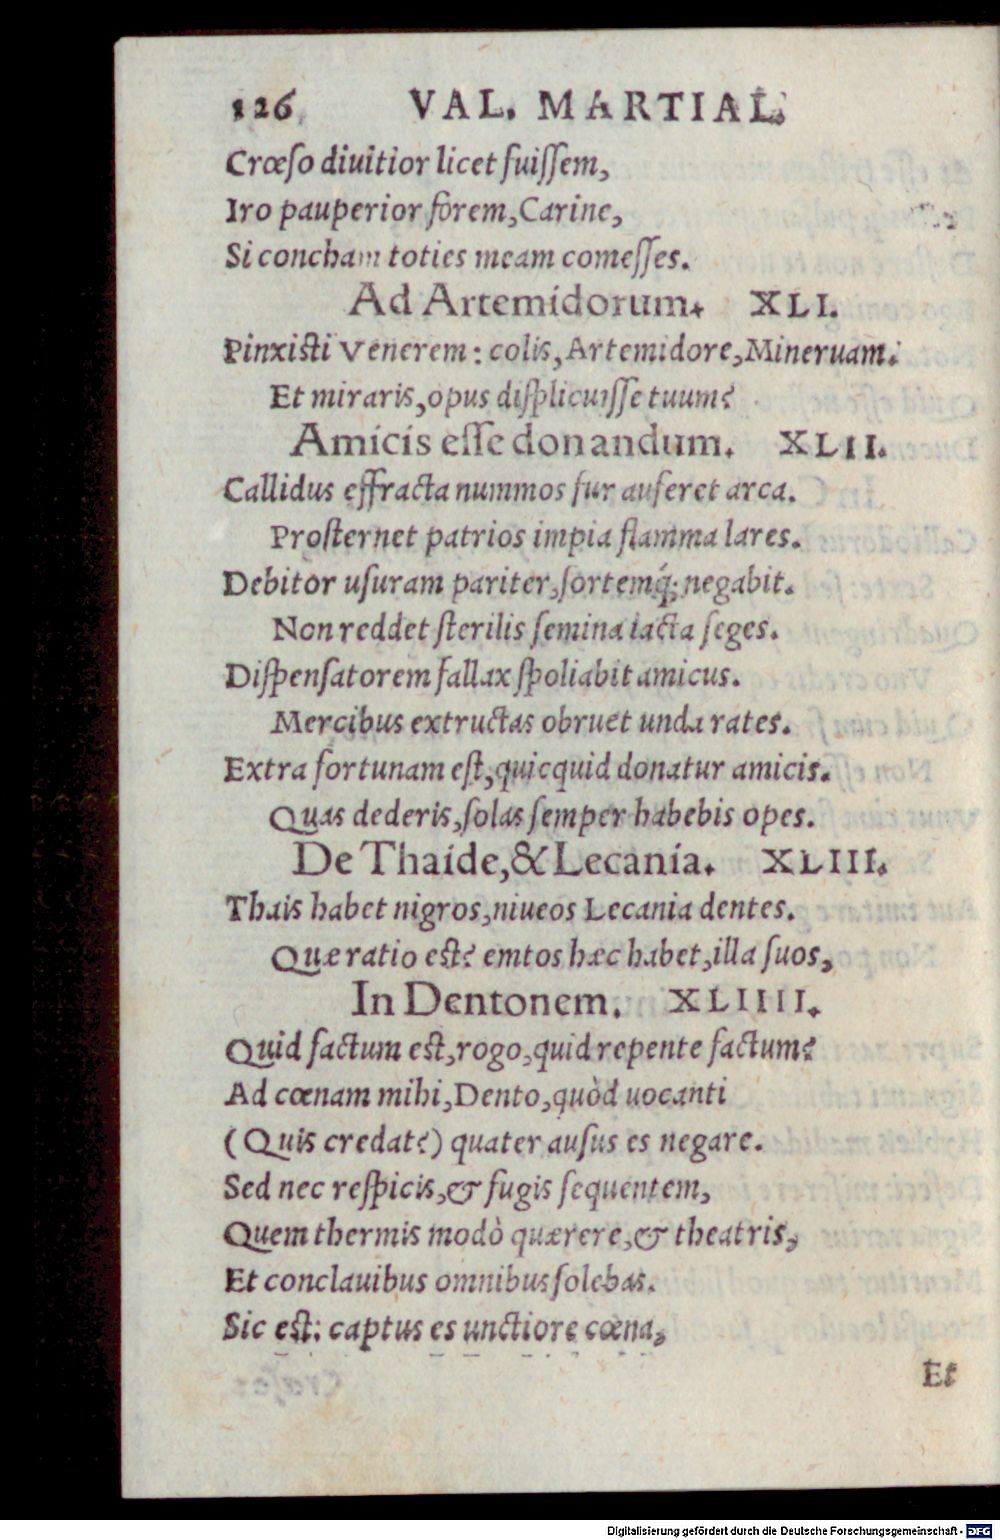 126 VAL. MARTIAL.
Crœſo diuitior licet fuiſſem,
Iro pauperior forem, Carine,
Si concham toties meam comeſſes.
Ad Artemidorum. XLI.
Pinxiſti Venerem: colis, Artemidore, Mineruam.
Et miraris, opus diſplicuiſſe tuum?
Amicis eſſe donandum. XLII.
Callidus effracta nummos fur auferet arca.
Proſternet patrios impia flamma lares.
Debitor uſuram pariter, ſortemq́; negabit.
Non reddet ſterilis ſemina iacta ſeges.
Diſpenſatorem fallax ſpoliabit amicus.
Mercibus extructas obruet unda rates.
Extra fortunam eſt, quicquid donatur amicis.
Quas dederis, ſolas ſemper habebis opes.
De Thaide, & Lecania. XLIII.
Thais habet nigros, niueos Lecania dentes.
Quæ ratio eſt? emtos hæc habet, illa ſuos,
In Dentonem. XLIIII.
Quid factum eſt, rogo, quid repente factum?
Ad cœnam mihi, Dento, quòd uocanti
(Quis credat?) quater auſus es negare.
Sed nec reſpicis, & fugis ſequentem,
Quem thermis modò quærere, & theatris,
Et conclauibus omnibus ſolebas.
Sic eſt: captus es unctiore cœna,
Et
Digitalisierung gefördert durch die Deutsche Forschungsgemeinschaft - DFG